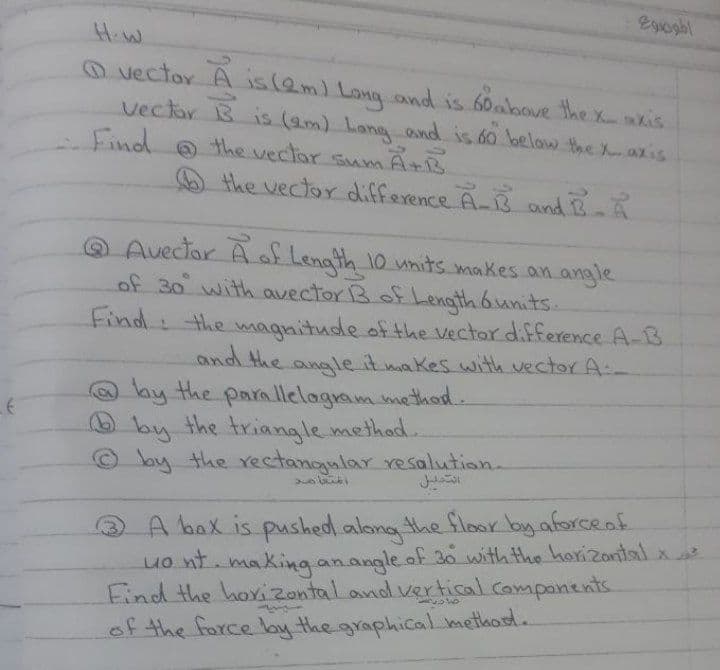 الموضوع
H.w
① vector A is (2m) Long and is 60° above the x axis
vector B is (2m) Long and is 60° below the x axis
Find ⓐ the vector sum A+B
ⓑ the vector difference A-B and B-A
② A vector A of Length 10 units makes an angle
of 30° with a vector B of Length 6 units.
Find : the magnitude of the vector difference A-B
and the angle it makes with vector A:-
ⓐ by the parallelogram method.
ⓑ by the triangle method.
ⓒ by the rectangular resalution.
التحليل
③ A box is pushed along the floor by a force of
40 nt. making an angle of 30° with the horizontal x
Find the horizontal and vertical Components
of the force by the graphical method.